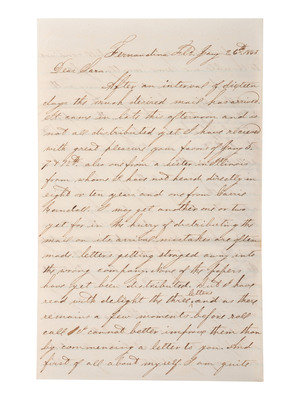 Fernandina Fla Jany 26th
Dear Sara
After an interval of fifteen
days the much desired mail has arrived
It came in late this afternoon and is
not all distributed yet. I have received
with great pleasure your favor of Jany 5
7 & 9th also one from a sister in Illinois
from whom I have not heard directly in
eight or ten years and one from
I may get another one or two
yet for in the hurry of distributing the
mail on its arrival mistakes are often
made letters getting into
the wrong company. None of the papers
have yet been distributed. But I have
read with delight the three letters and as there
remains a few moments before roll
call I cannot better improve them than
by commencing a letter to you. And
first of all about myself I am quite